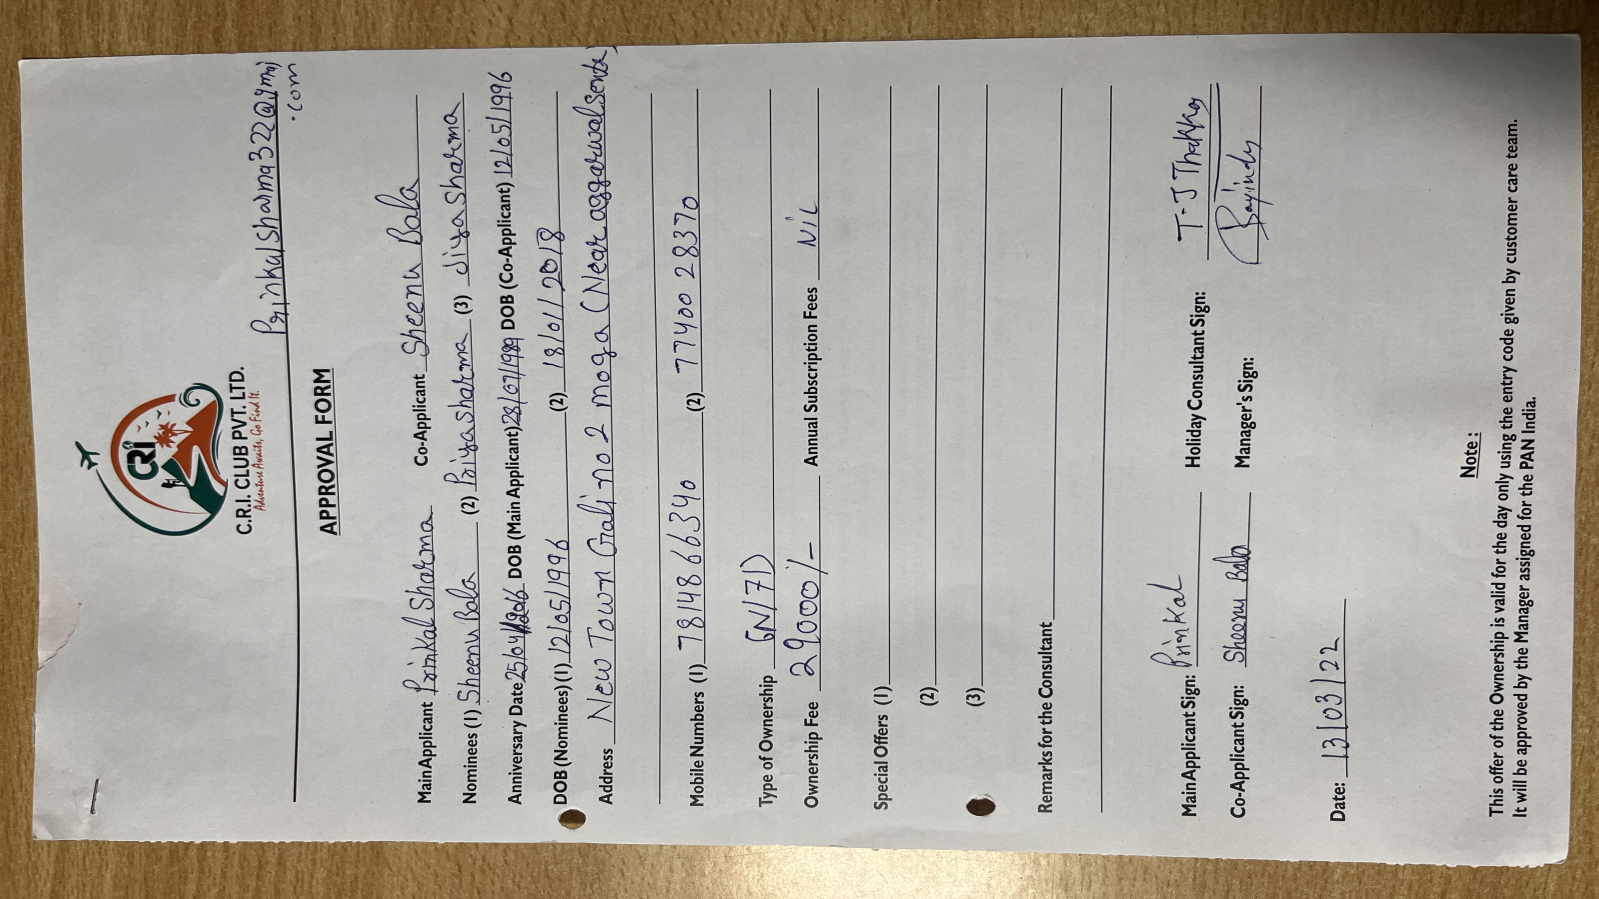 CRI
C.R.I. CLUB PVT. LTD.
Adventure Awaits, Go Find It.
Prinkalsharma322@gmai
.com
APPROVAL FORM
Main Applicant Prinkal Sharma Co-Applicant Sheenu Bala
Nominees (1) Sheenu Bala (2) Priyasharma (3) Jiyasharma
Anniversary Date 25/04/2016 DOB (Main Applicant) 28/07/1989 DOB (Co-Applicant) 12/05/1996
DOB (Nominees) (1) 12/05/1996 (2) 18/01/2018
Address New Town Gali no 2 moga (Near aggarwal
Mobile Numbers (1) 78148 66340 (2) 77400 28370
Type of Ownership 6N/7D
Ownership Fee 29000/- Annual Subscription Fees Nil
Special Offers (1)
(2)
(3)
Remarks for the Consultant
Main Applicant Sign: Prinkal Holiday Consultant Sign: T.J Thakkar
Co-Applicant Sign: Sheenu Bala Manager's Sign:
Date: 13/03/22
Note :
This offer of the Ownership is valid for the day only using the entry code given by customer care team.
It will be approved by the Manager assigned for the PAN India.